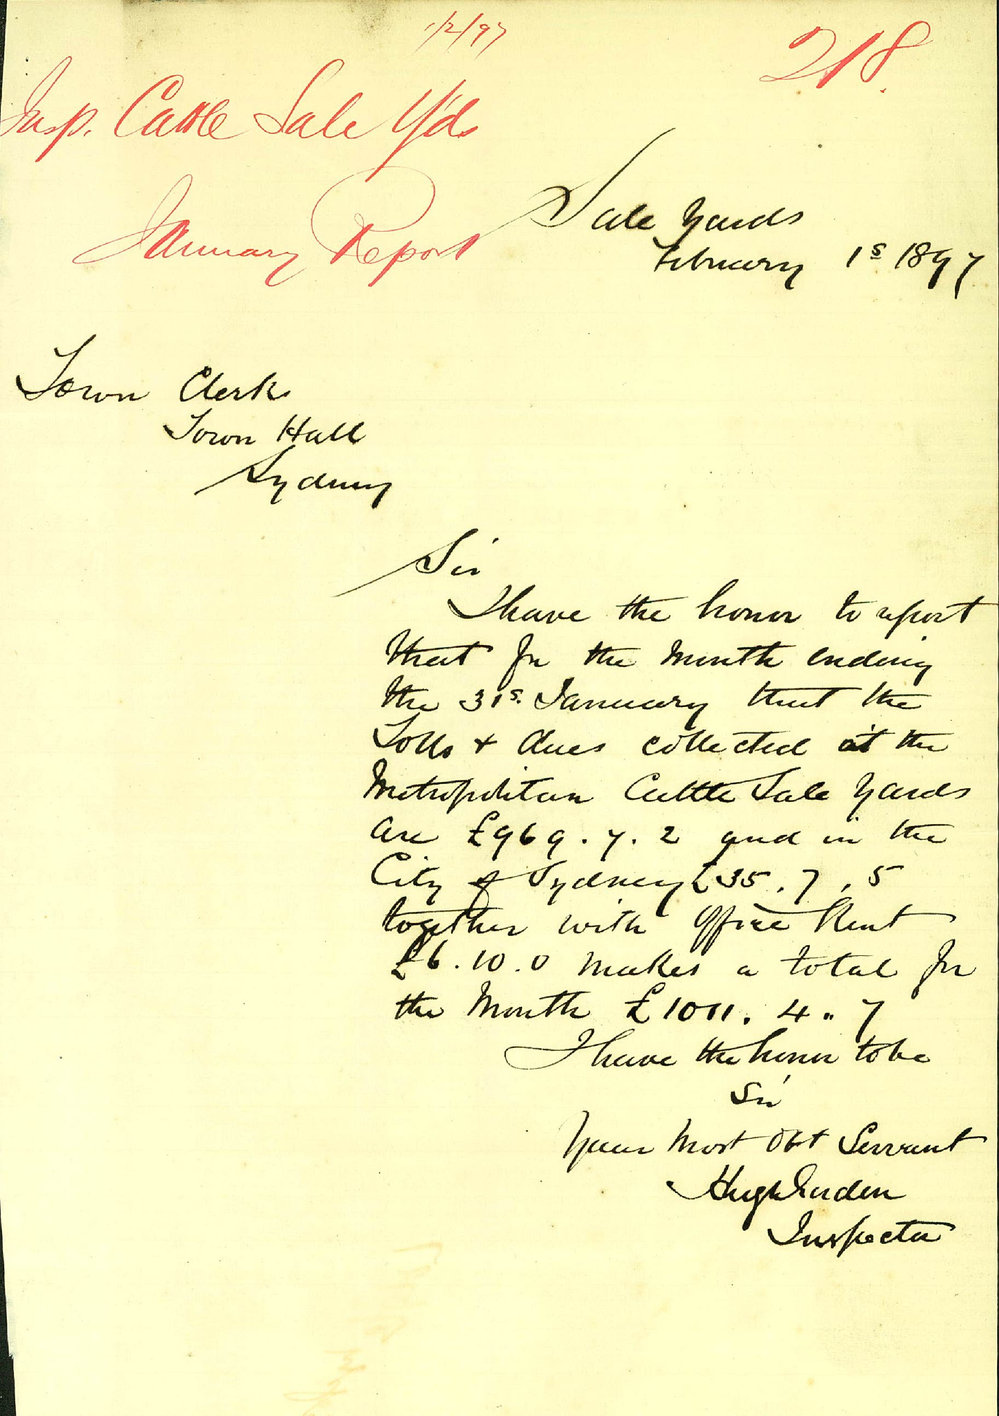 1/2/97
218.
Insp. Cattle Sale Yds
January Report
Sale Yards
February 1s 1897
Town Clerk
Town Hall
Sydney
Sir
I have the honor to report
that for the Month ending
the 31s. January that the
Tolls & dues collected at the
Metropolitan Cattle Sale Yards
are £969.7.2 and in the
City of Sydney £35.7.5
together with Office Rent
£6.10.0 makes a total for
the Month £1011.4.7
I have the honor to be
Sir
Your Most Obt Servant
Hugh
Inspector